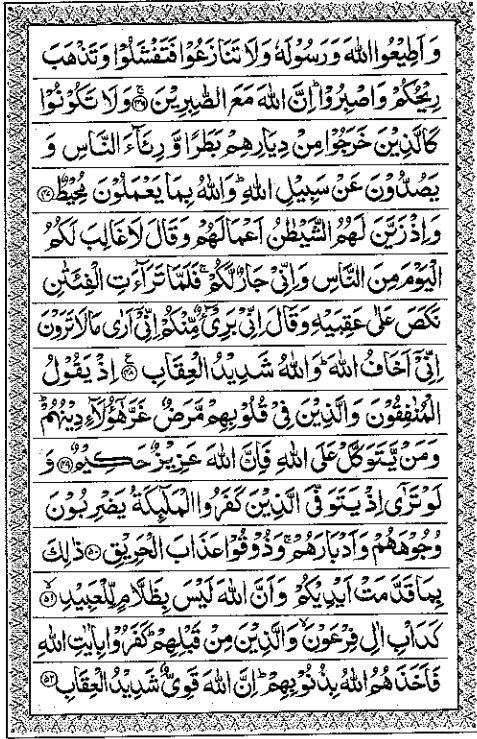 وَاَطِيْعُوا اللّٰهَ وَرَسُوْلَهٗ وَلَا تَنَازَعُوْا فَتَفْشَلُوْا وَتَذْهَبَ
رِيْحُكُمْ وَاصْبِرُوْا ؕ اِنَّ اللّٰهَ مَعَ الصّٰبِرِيْنَ ۚ‏﴿۴۶﴾ وَلَا تَكُوْنُوْا
كَالَّذِيْنَ خَرَجُوْا مِنْ دِيَارِهِمْ بَطَرًا وَّ رِئَآءَ النَّاسِ وَ
يَصُدُّوْنَ عَنْ سَبِيْلِ اللّٰهِ ؕ وَاللّٰهُ بِمَا يَعْمَلُوْنَ مُحِيْطٌ ﴿۴۷﴾
وَاِذْ زَيَّنَ لَهُمُ الشَّيْطٰنُ اَعْمَالَهُمْ وَقَالَ لَا غَالِبَ لَكُمُ
الْيَوْمَ مِنَ النَّاسِ وَاِنِّيْ جَارٌ لَّكُمْ ۚ فَلَمَّا تَرَآءَتِ الْفِئَتٰنِ
نَكَصَ عَلٰى عَقِبَيْهِ وَقَالَ اِنِّيْ بَرِيْٓءٌ مِّنْكُمْ اِنِّيْٓ اَرٰى مَا لَا تَرَوْنَ
اِنِّيْٓ اَخَافُ اللّٰهَ ؕ وَاللّٰهُ شَدِيْدُ الْعِقَابِ ﴿۴۸﴾ اِذْ يَقُوْلُ
الْمُنٰفِقُوْنَ وَالَّذِيْنَ فِيْ قُلُوْبِهِمْ مَّرَضٌ غَرَّ هٰٓؤُلَآءِ دِيْنُهُمْ ؕ
وَمَنْ يَّتَوَكَّلْ عَلَى اللّٰهِ فَاِنَّ اللّٰهَ عَزِيْزٌ حَكِيْمٌ ﴿۴۹﴾ وَ
لَوْ تَرٰٓى اِذْ يَتَوَفَّى الَّذِيْنَ كَفَرُوا الْمَلٰٓئِكَةُ يَضْرِبُوْنَ
وُجُوْهَهُمْ وَاَدْبَارَهُمْ ۚ وَذُوْقُوْا عَذَابَ الْحَرِيْقِ ﴿۵۰﴾ ذٰلِكَ
بِمَا قَدَّمَتْ اَيْدِيْكُمْ وَاَنَّ اللّٰهَ لَيْسَ بِظَلَّامٍ لِّلْعَبِيْدِ ۙ﴿۵۱﴾
كَدَاْبِ اٰلِ فِرْعَوْنَ ۙ وَالَّذِيْنَ مِنْ قَبْلِهِمْ ؕ كَفَرُوْا بِاٰيٰتِ اللّٰهِ
فَاَخَذَهُمُ اللّٰهُ بِذُنُوْبِهِمْ ؕ اِنَّ اللّٰهَ قَوِيٌّ شَدِيْدُ الْعِقَابِ ﴿۵۲﴾